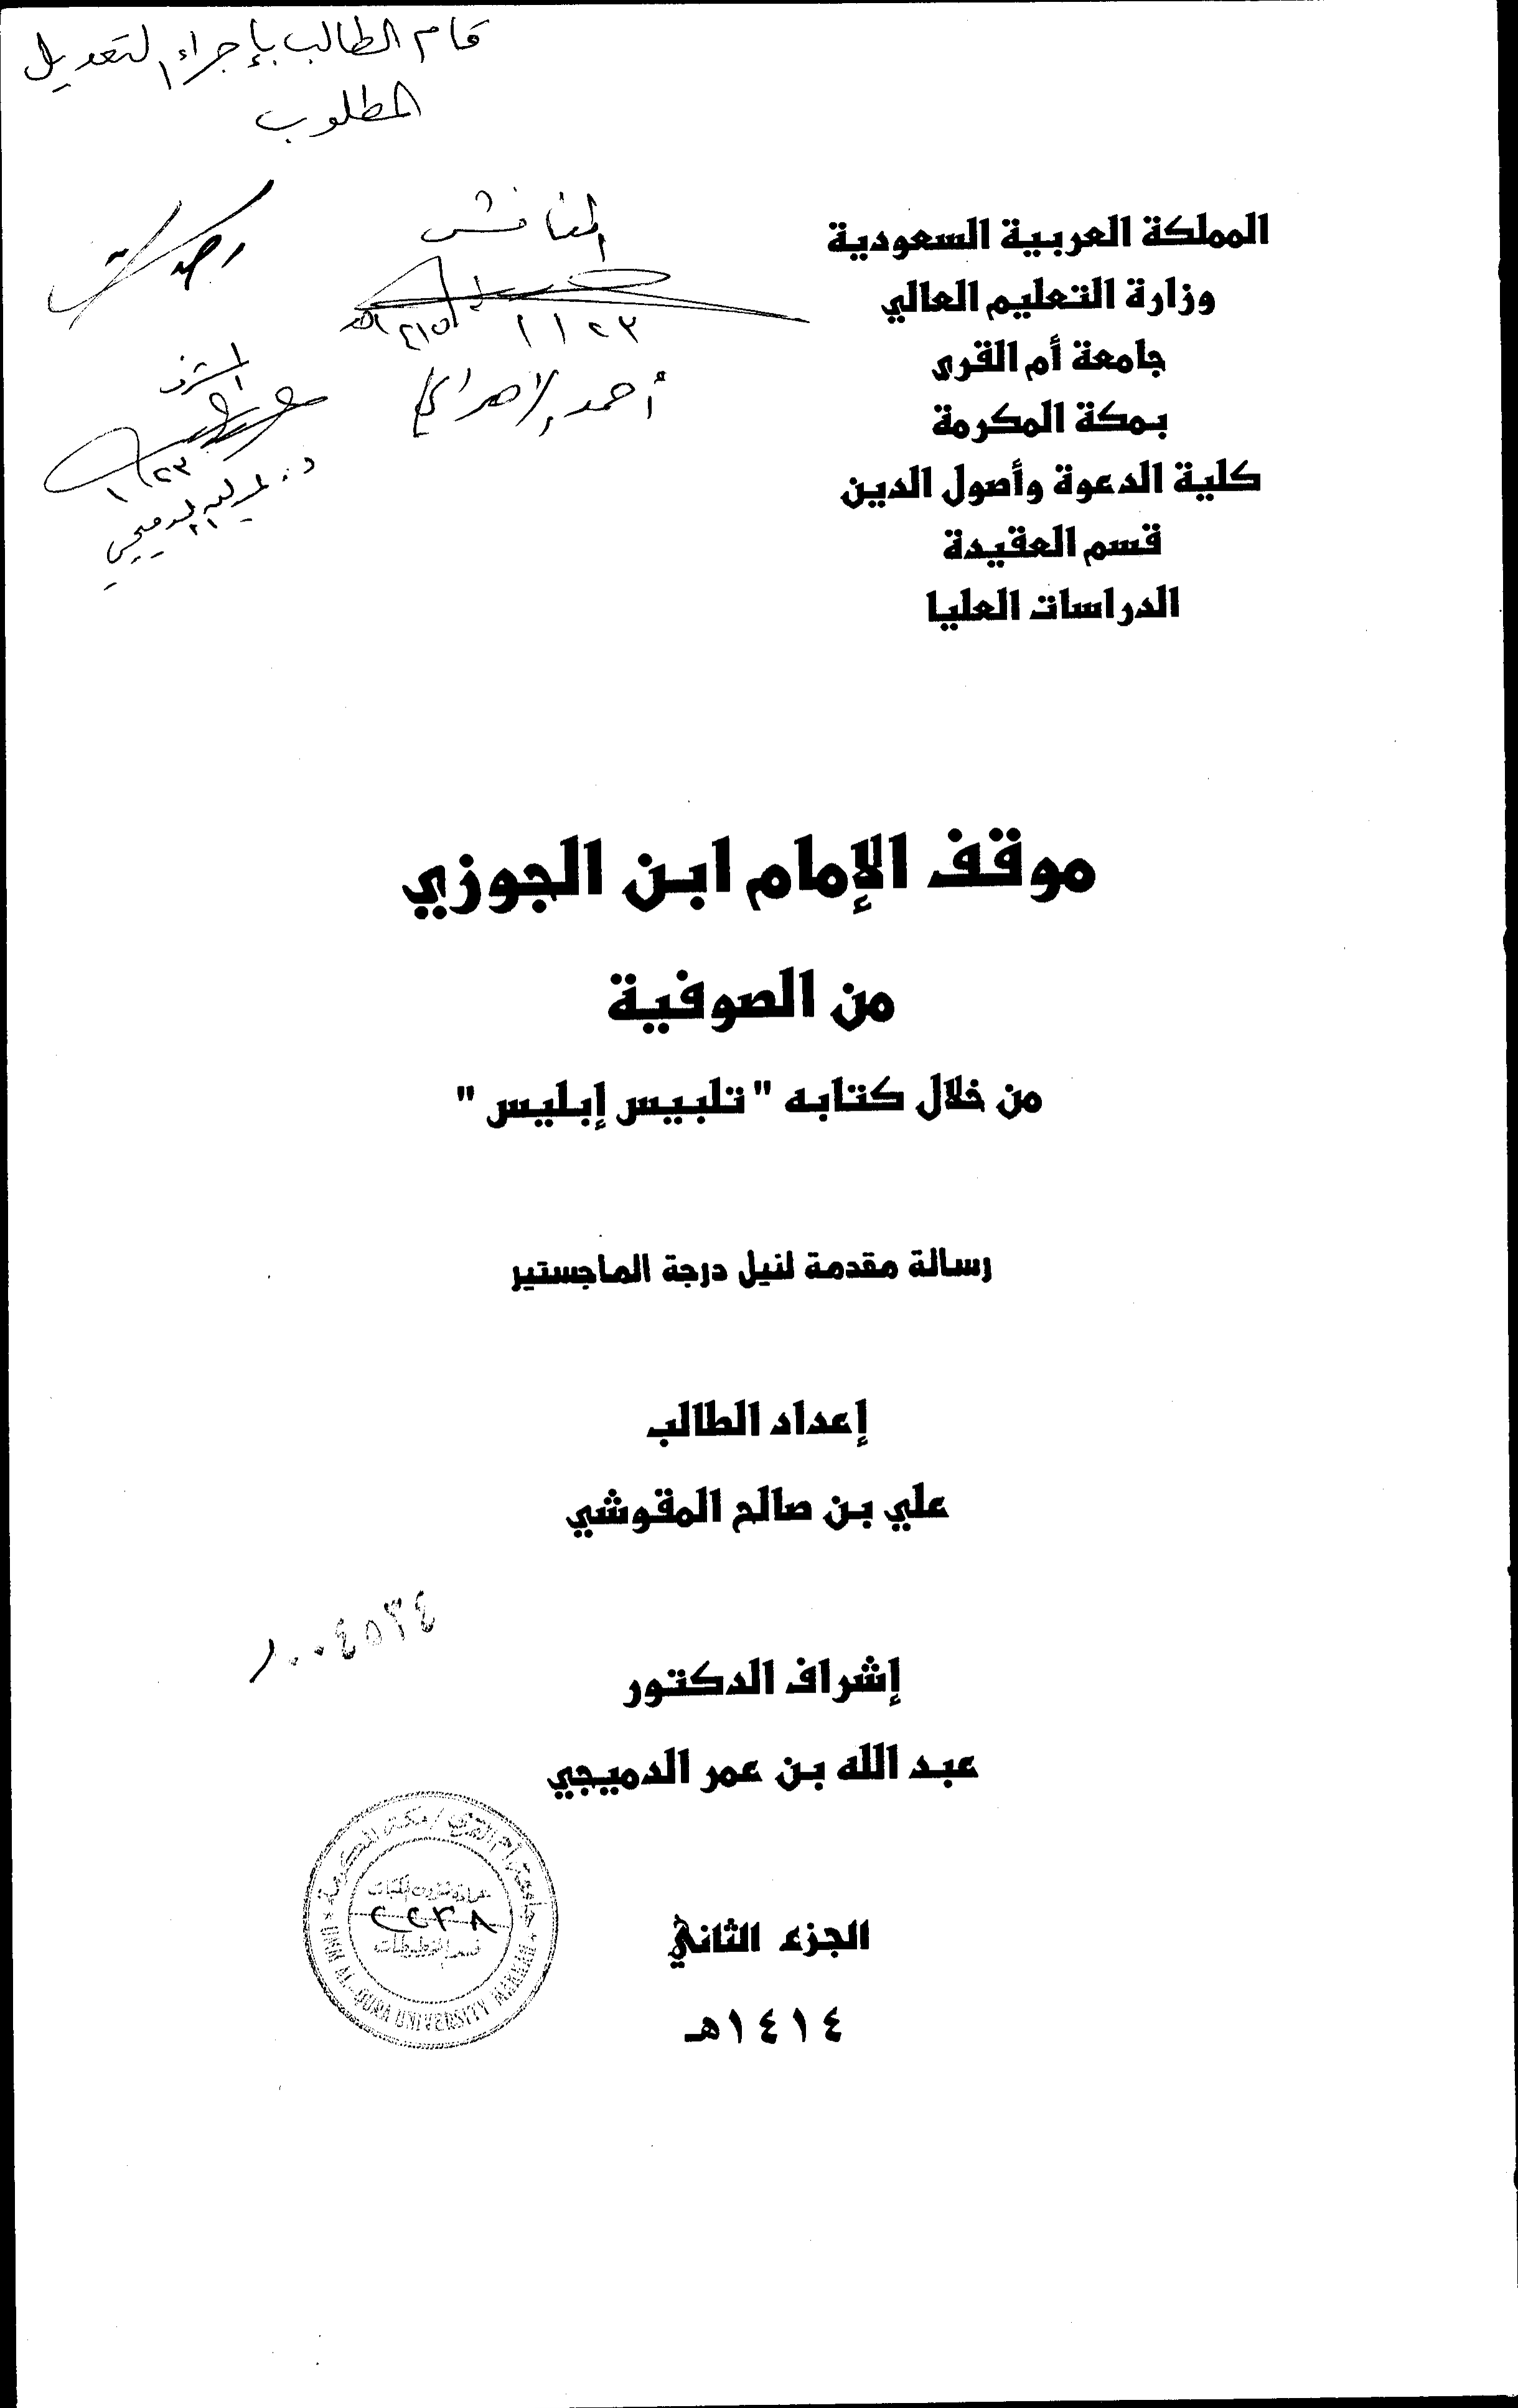 قام الطالب بإجراء التعديل
المطلوب
المناقش
المشرف
المملكة العربية السعودية
وزارة التعليم العالي
جامعة أم القرى
بمكة المكرمة
كلية الدعوة وأصول الدين
قسم العقيدة
الدراسات العليا
موقف الإمام ابن الجوزي
من الصوفية
من خلال كتابه " تلبيس إبليس "
رسالة مقدمة لنيل درجة الماجستير
إعداد الطالب
علي بن صالح المقوشي
١٠٠٤٥٣٤
إشراف الدكتور
عبد الله بن عمر الدميجي
جامعة أم القرى / مكة المكرمة
عمادة شؤون المكتبات
قسم المخطوطات
UMM AL-QURA UNIVERSITY MAKKAH
الجزء الثاني
١٤١٤هـ